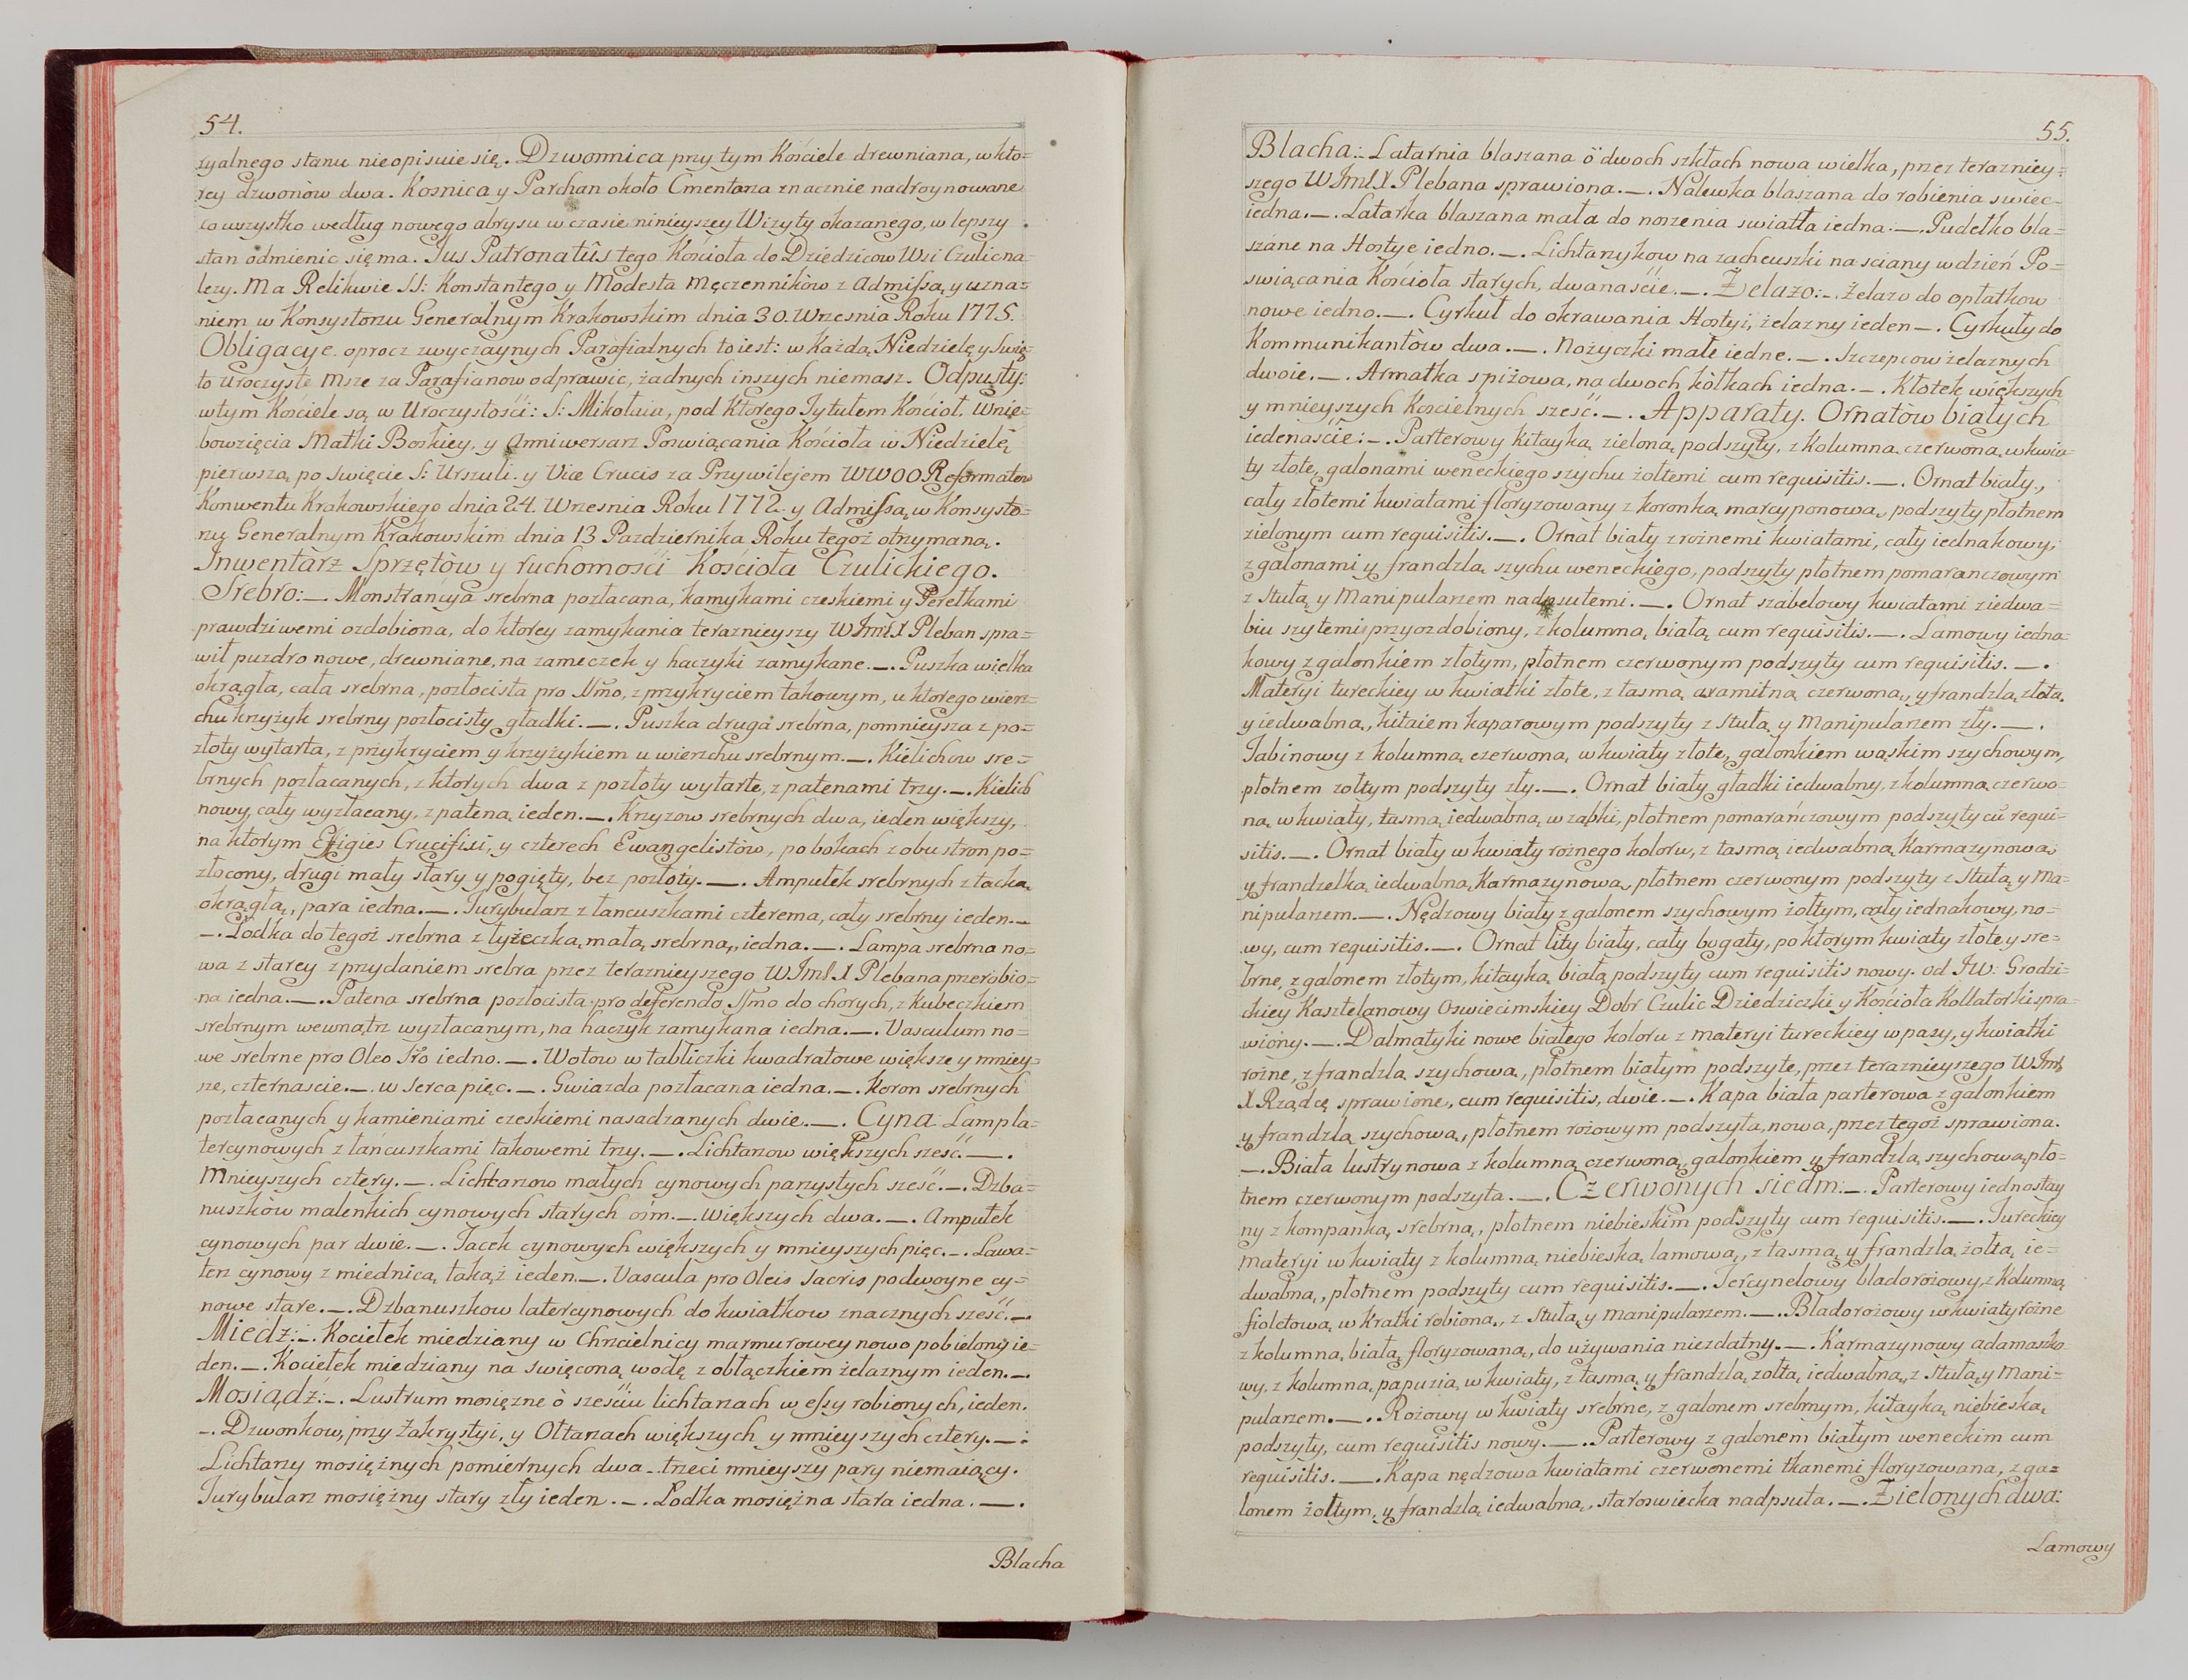 54.
zyalnego stanu nieopisuie się. Dzwonnica przy tym Kościele drewniana, w kto=
rey dzwonòw dwa. Kosnica y Parchan około Cmentarza znacznie nadroynowane
co wszystko według nowego abrysu w czasie ninieyszey Wizyty okazanego, w lepszy
stan odmienic się ma. Jus Patronatûs tego Kościoła do Dziedzicow Wsi Czulic na=
leży. Ma Relikwie SS: Konstantego y Modesta Męczennikòw z Admissą y uzna=
niem w Konsystorzu Generalnym Krakowskim dnia 30. Wrzesnia Roku 1775.
Obligacye oprocz zwyczaynych Parafialnych to iest: w Każdą Niedzielę y Swię=
to Uroczyste Msze za Parafianow odprawic, żadnych inszych niemasz. Odpusty:
w tym Kościele są w Uroczystości: S: Mikołaia, pod Ktorego Tytułem Kościoł. Wnie=
bowzięcia Matki Boskiey, y Anniwersarz Poswiącania Kościoła w Niedzielę
pierwszą po swięcie S: Urszuli. y Viæ Crucis za Przywilejem WWOO Reformatow
Konwentu Krakowskiego dnia 24. Wrzesnia Roku 1772. y Admissą w Konsysto=
rzu Generalnym Krakowskim dnia 13 Pazdziernika Roku tegoż otrzymaną.
Inwentarz Sprzętòw y ruchomości Kościoła Czulickiego.
Srebro:_ Monstrancya srebrna pozłacana, kamykami czeskiemi y Perełkami
prawdziwemi ozdobiona, do ktorey zamykania teraznieyszy WJmX Pleban spra=
wił puzdro nowe, drewniane, na zameczek y haczyki zamykane._. Puszka wielka
okrągła, cała srebrna, pozłocista pro SSmo, z przykryciem takowym, u ktorego wierz=
chu krzyżyk srebrny pozłocisty gładki._. Puszka druga srebrna, pomnieysza z po=
złoty wytarta, z przykryciem y krzyżykiem u wierzchu srebrnym._. Kielichow sre=
brnych pozłacanych, z ktorych dwa z pozłoty wytarte, z patenami trzy._. Kielich
nowy, cały wyzłacany, z pateną ieden._. Krzyzow srebrnych dwa, ieden większy,
na ktorym Effigies Crucifixi, y czterech Ewangelistòw, po bokach z obu stron po=
złocony, drugi mały stary y pogięty, bez pozłoty._. Ampułek srebrnych z tacką
okrągłą, para iedna._. Turybularz z łancuszkami czterema, cały srebrny ieden._
_. Łodka do tegoż srebrna z łyżeczką małą srebrną, iedna._. Lampa srebrna no=
wa z starey z przydaniem srebra przez teraznieyszego WJmX Plebana przerobio=
na iedna._. Patena srebrna pozłocista pro deferendo SSmo do chorych, z kubeczkiem
srebrnym wewnątrz wyzłacanym, na haczyk zamykana iedna._. Vasculum no=
we srebrne pro Oleo Sro iedno._. Wotow w tabliczki kwadratowe większe y mniey=
sze, czternascie._. w Serca pięc._. Gwiazda pozłacana iedna._. Koron srebrnych
pozłacanych y kamieniami czeskiemi nasadzanych dwie._. Cyna: Lamp la=
tercynowych z łańcuszkami takowemi trzy._. Lichtarzow większych szesć._.
Mnieyszych cztery._. Lichtarzow małych cynowych parzystych szesć._. Dzba=
nuszkow malenkich cynowych starych ośm._. Większych dwa._. Ampułek
cynowych par dwie._. Tacek cynowych większych y mnieyszych pięc._. Lawa=
terz cynowy z miednicą takąż ieden._. Vascula pro Oleis Sacris podwoyne cy=
nowe stare._. Dzbanuszkow latercynowych do kwiatkow znacznych szesć._.
Miedź:_. Kociełek miedziany w Chrzcielnicy marmurowey nowo pobielony ie=
den._. Kociełek miedziany na swięconą wodę z obłączkiem żelaznym ieden._.
Mosiądź:_. Lustrum mosięzne ò sześciu lichtarzach w essy robionych, ieden.
_. Dzwonkow, przy Zakrystyi, y Ołtarzach większych y mnieyszych cztery._.
Lichtarzy mosiężnych pomiernych dwa _ trzeci mnieyszy pary niemaiący.
Turybularz mosiężny stary zły ieden._. Łodka mosiężna stara iedna._.
Blacha
55.
Blacha:_ Latarnia blaszana ò dwoch szkłach nowa wielka, przez terazniey=
szego WJmX Plebana sprawiona._. Nalewka blaszana do robienia swiec
iedna._. Latarka blaszana mała do noszenia swiatła iedna._. Pudełko bla=
szane na Hostye iedno._. Lichtarzykow na zacheuszki na sciany w dzień Po=
swiącania Kościoła starych, dwanaście._. Żelazo:_. Żelazo do opłatkow
nowe iedno._. Cyrkuł do okrawania Hostyi, żelazny ieden_. Cyrkuły do
Kommunikantòw dwa._. Nożyczki małe iedne._. Szczepcow żelaznych
dwoie._. Armatka spiżowa, na dwoch kòłkach iedna._. Kłotek większych
y mnieyszych Koscielnych szesć._. Apparaty. Ornatòw białych
iedenaście:_. Parterowy kitayką zieloną podszyty, z kolumną czerwoną w kwia=
ty złote, galonami weneckiego szychu żołtemi cum requisitis._. Ornat biały,
cały złotemi kwiatami floryzowany z koronką marcyponową, podszyty płotnem
zielonym cum requisitis._. Ornat biały z rożnemi kwiatami, cały iednakowy,
z galonami y frandzlą szychu weneckiego, podszyty płotnem pomaranczowym
z Stułą y Manipularzem nadpsutemi._. Ornat szabelowy kwiatami z iedwa=
biu szytemi przyozdobiony, z kolumną białą cum requisitis._. Lamowy iedna=
kowy z galonkiem złotym, płotnem czerwonym podszyty cum requisitis._.
Materyi tureckiey w kwiatki złote, z tasmą axamitną czerwoną, y frandzlą złotą
y iedwabną, kitaiem kaparowym podszyty z Stułą y Manipularzem zły._.
Tabinowy z kolumną czerwoną w kwiaty złote, galonkiem wąskim szychowym,
płotnem zołtym podszyty zły._. Ornat biały gładki iedwabny, z kolumną czerwo=
ną w kwiaty, tasmą iedwabną w ząbki, płotnem pomarańczowym podszyty cū requi=
sitis._. Ornat biały w kwiaty rożnego koloru, z tasmą iedwabną Karmazynową
y frandzelką iedwabną Karmazynową, płotnem czerwonym podszyty z Stułą y Ma=
nipularzem._. Nędzowy biały z galonem szychowym żołtym, cały iednakowy, no=
wy, cum requisitis._. Ornat lity biały, cały bogaty, po ktorym kwiaty złote y sre=
brne, z galonem złotym, kitayką białą podszyty cum requisitis nowy. od JW: Grodzi=
ckiey Kasztelanowy Oswiecimskiey Dobr Czulic Dziedziczki y Kościoła Kollatorki spra=
wiony._. Dalmatyki nowe białego koloru z materyi tureckiey w pasy, y kwiatki
rożne, z frandzlą szychową, płotnem białym podszyte, przez teraznieyszego WJm
X Rządcę sprawione, cum requisitis, dwie._. Kapa biała parterowa z galonkiem
y frandzlą szychową, płotnem rożowym podszyta, nowa, przez tegoż sprawiona.
_. Biała lustrynowa z kolumną czerwoną, galonkiem y frandzlą szychową, pło=
tnem czerwonym podszyta._. Czerwonych siedm:_. Parterowy iednostay
ny z kompanką srebrną, płotnem niebieskim podszyty cum requisitis._. Tureckiey
materyi w kwiaty z kolumną niebieską lamową, z tasmą y frandzlą żołtą ie=
dwabną, płotnem podszyty cum requisitis._. Tercynelowy bladorożowy, z Kolumną
fioletową w Kratki robioną, z Stułą y Manipularzem._. Bladorożowy w kwiaty rożne
z kolumną białą floryzowaną, do używania niezdatny._. Karmazynowy adamaszko=
wy, z kolumną papuzią w kwiaty, z tasmą y frandzlą zołtą iedwabną, z Stułą y Mani=
pularzem._. Rożowy w kwiaty srebrne, z galonem srebrnym, kitayką niebieską
podszyty, cum requisitis nowy._. Parterowy z galonem białym weneckim cum
requisitis._. Kapa nędzowa kwiatami czerwonemi tkanemi floryzowana, z ga=
lonem żołtym, y frandzlą iedwabną, staroswiecka nadpsuta._. Zielonych dwa:
Lamowy